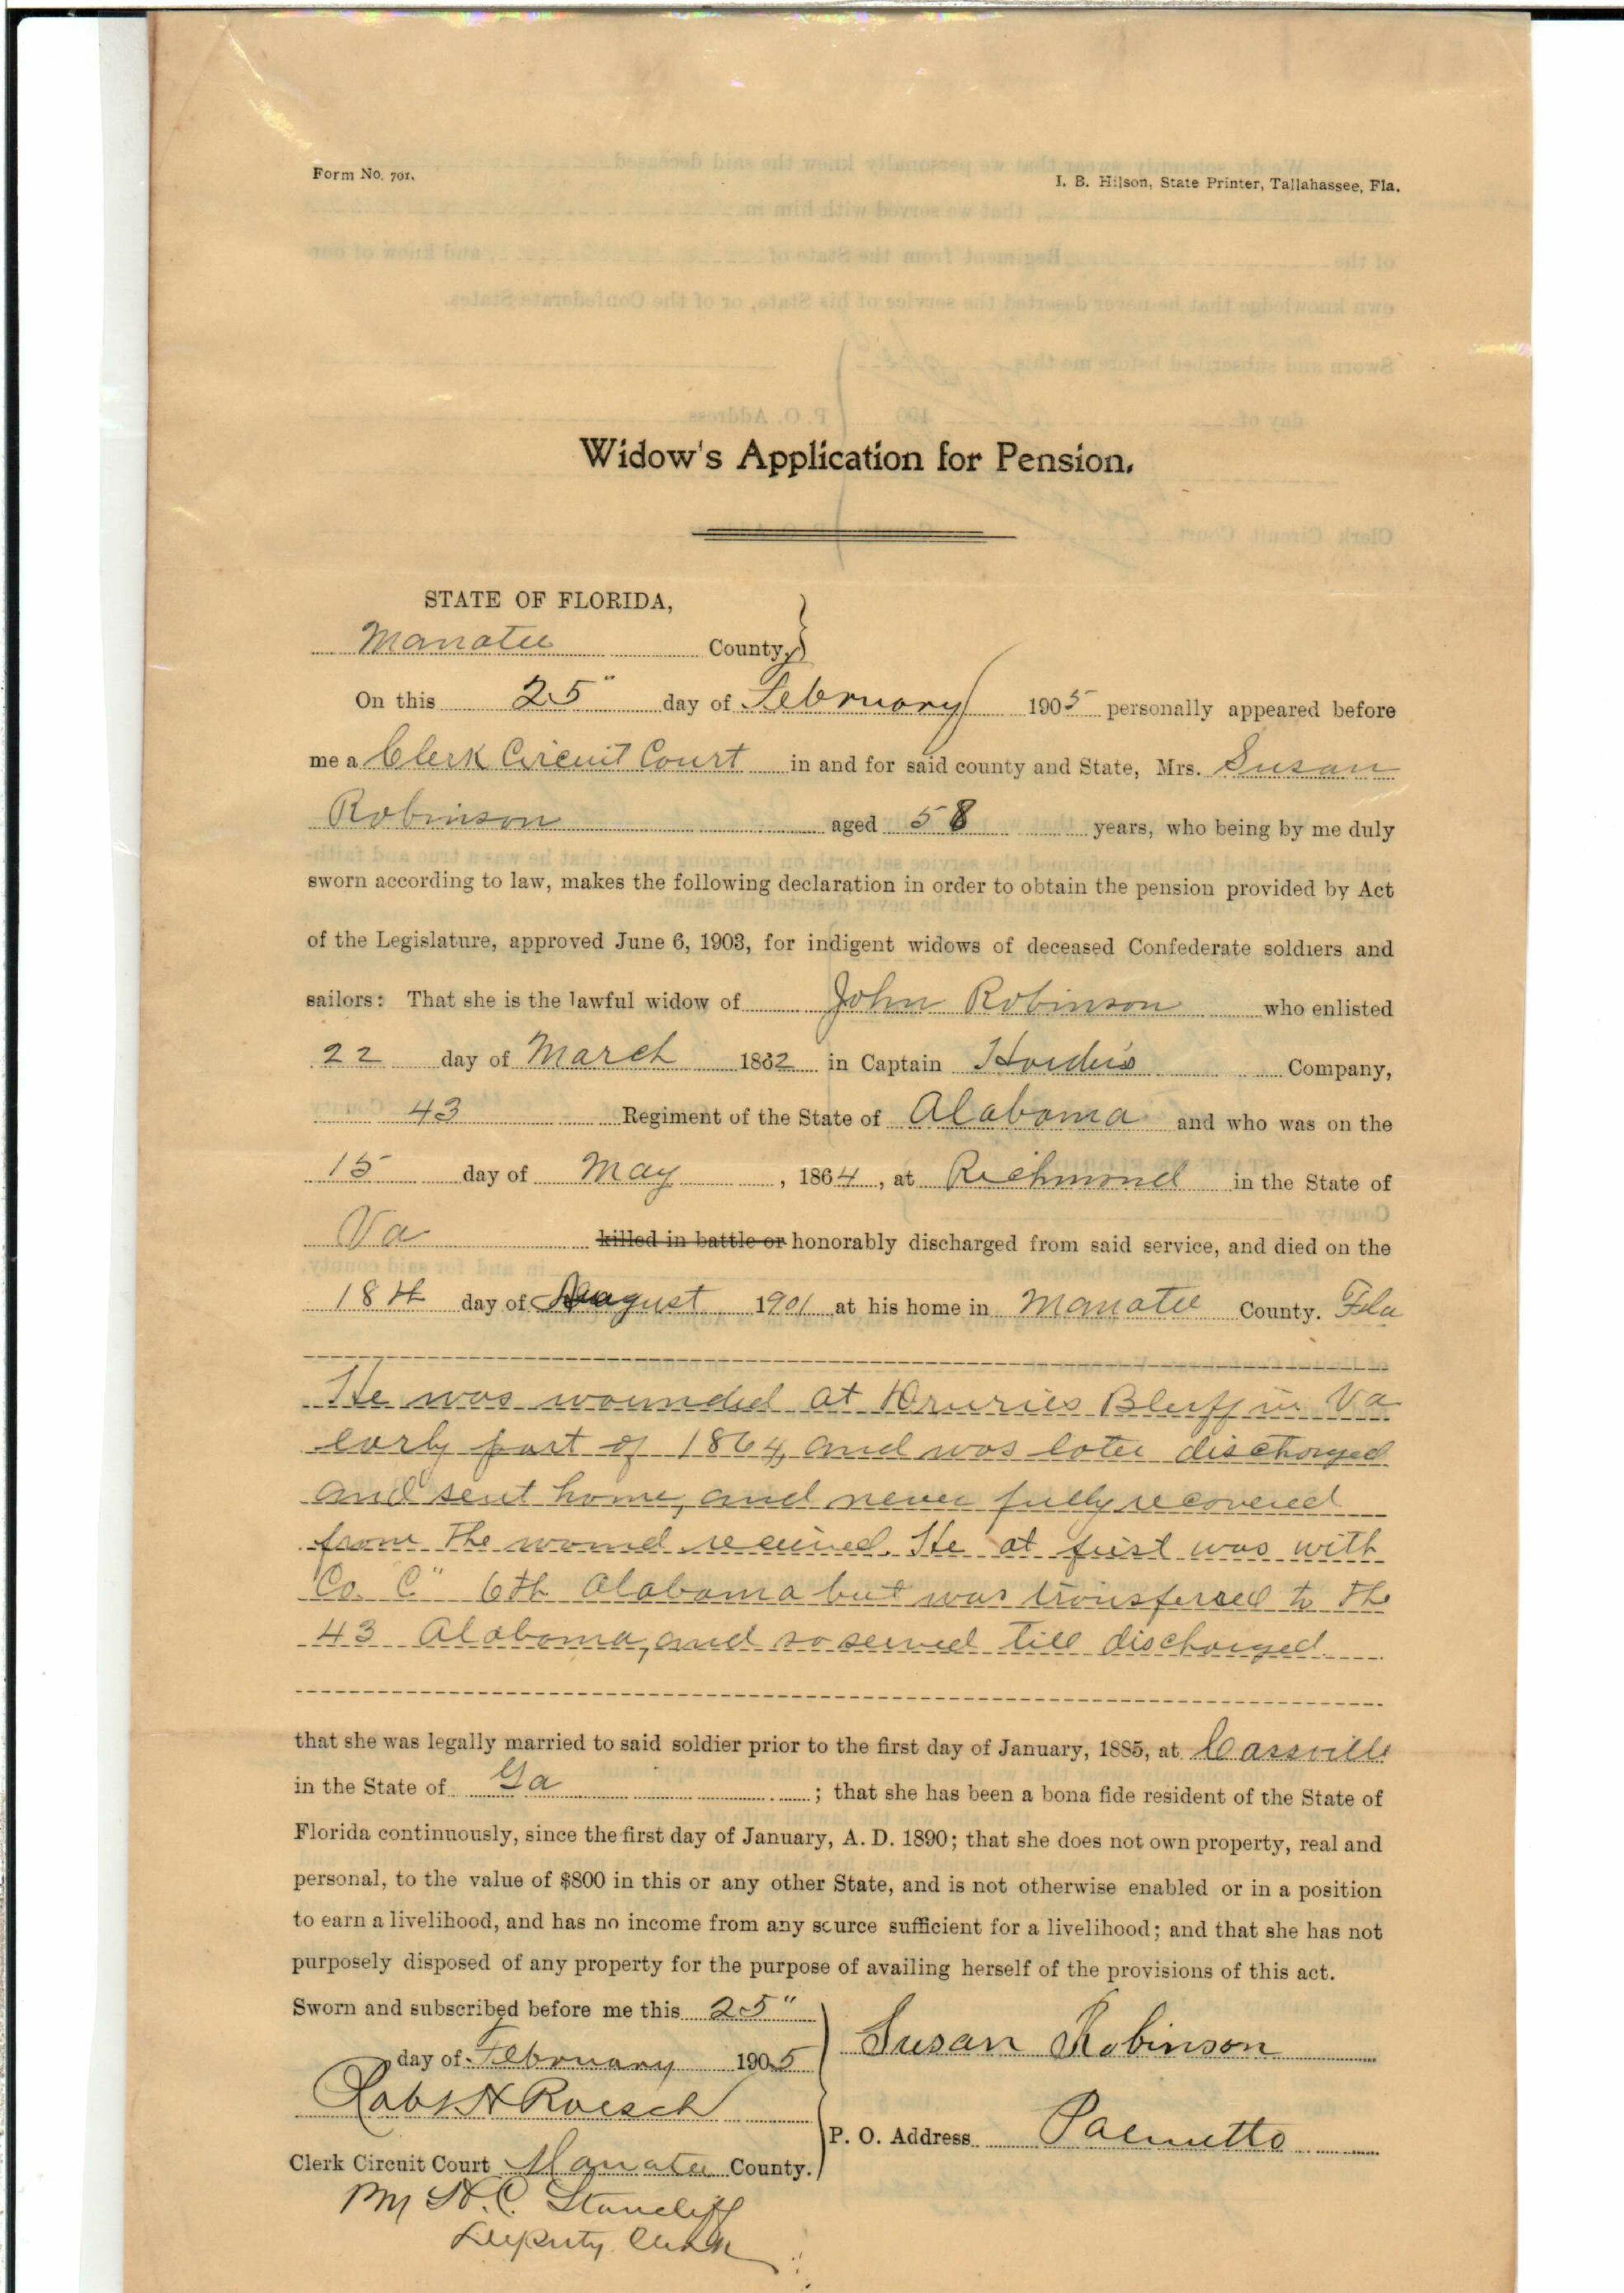 Form No. 701.
I. B. Hilson, State Printer, Tallahassee, Fla.
Widow's Application for Pension.
STATE OF FLORIDA,
Manatee County,
On this 25" day of February 1905 personally appeared before
me a Clerk Circuit Court in and for said county and State, Mrs. Susan
Robinson aged 58 years, who being by me duly
sworn according to law, makes the following declaration in order to obtain the pension provided by Act
of the Legislature, approved June 6, 1903, for indigent widows of deceased Confederate soldiers and
sailors: That she is the lawful widow of John Robinson who enlisted
22 day of March 1862 in Captain Company,
43 Regiment of the State of Alabama and who was on the
15 day of May, 1864, at Richmond in the State of
Va killed in battle or honorably discharged from said service, and died on the
18th day of August 1901 at his home in Manatee County. Fla
He was wounded at Druries Bluff in Va
early part of 1864, and was later discharged
and sent home, and never fully recovered
from the wound received. He at first was with
"Co. C" 6th Alabama but was transferred to the
43 Alabama, and so served till discharged
that she was legally married to said soldier prior to the first day of January, 1885, at Cassville
in the State of Ga ; that she has been a bona fide resident of the State of
Florida continuously, since the first day of January, A. D. 1890; that she does not own property, real and
personal, to the value of $800 in this or any other State, and is not otherwise enabled or in a position
to earn a livelihood, and has no income from any source sufficient for a livelihood; and that she has not
purposely disposed of any property for the purpose of availing herself of the provisions of this act.
Sworn and subscribed before me this 25"
day of February 1905
Susan Robinson
Robt H Roesch
P. O. Address Palmetto
Clerk Circuit Court Manatee County.
By H. C. Stancliff
Deputy Clerk